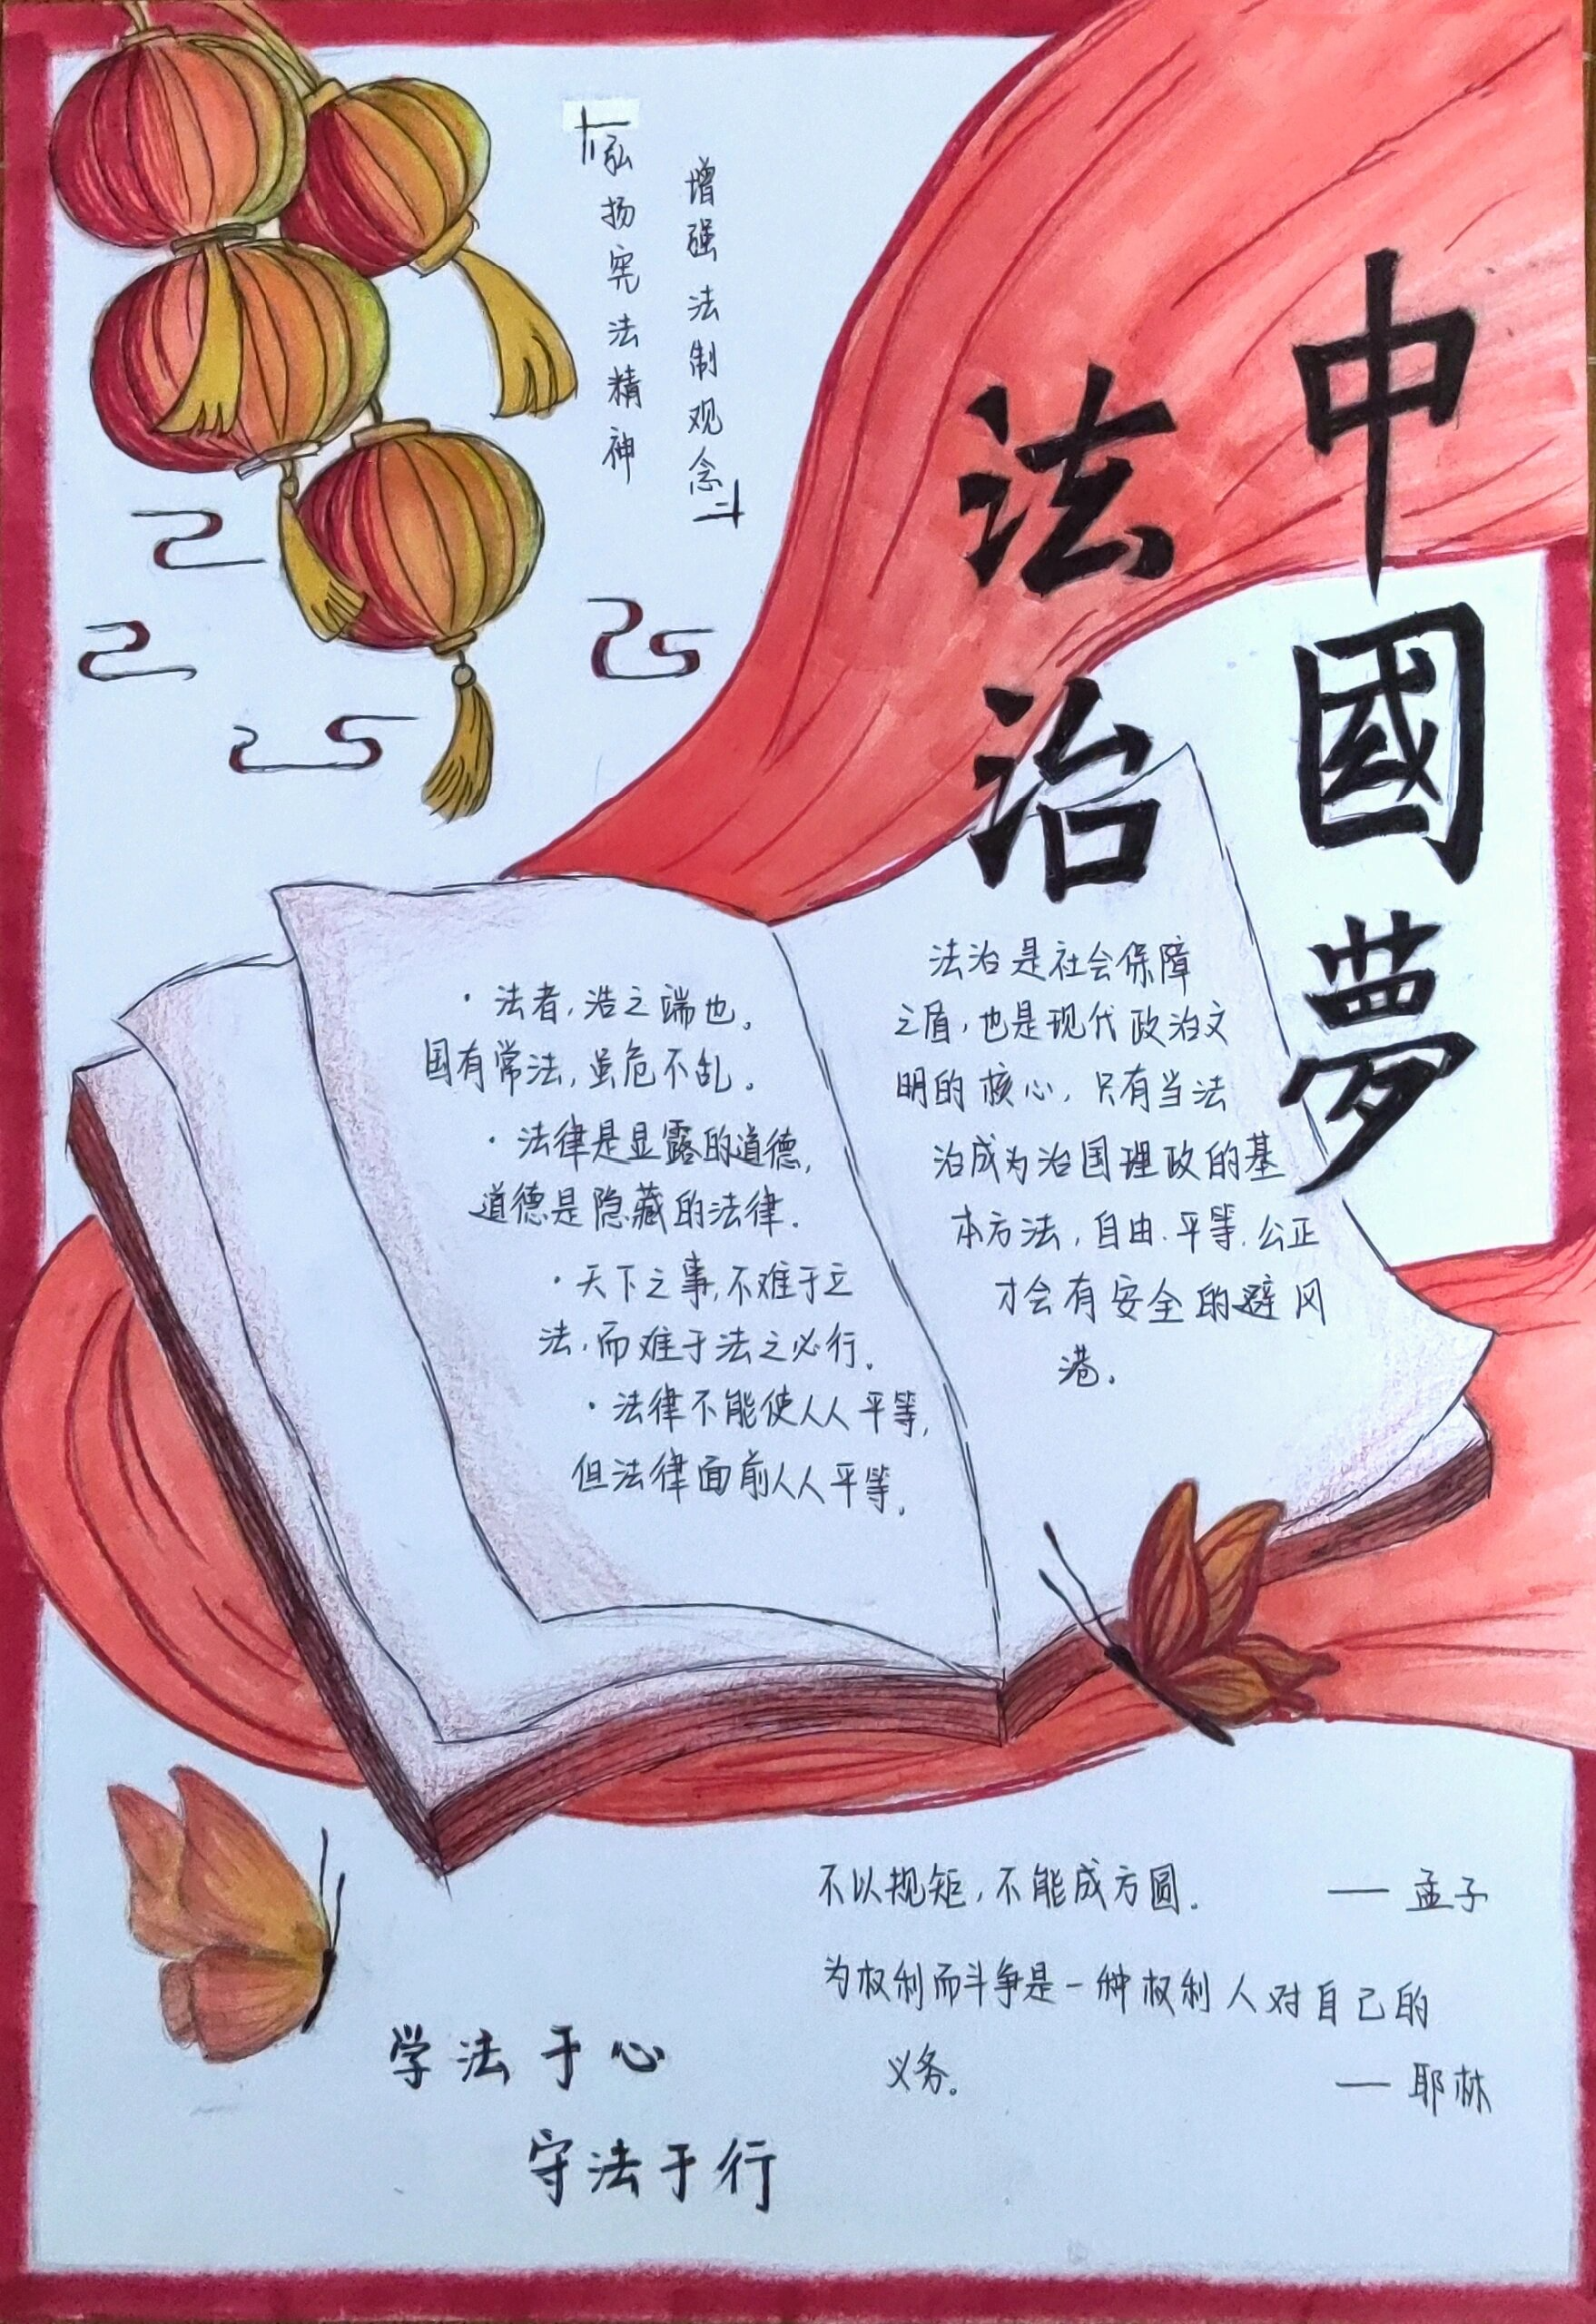 中國夢
法治
弘扬宪法精神
增强法制观念
·法者,浩之端也。
国有常法,虽危不乱。
·法律是显露的道德,
道德是隐藏的法律.
·天下之事,不难于立
法,而难于法之必行。
·法律不能使人人平等,
但法律面前人人平等.
法治是社会保障
之盾,也是现代政治文
明的核心,只有当法
治成为治国理政的基
本方法,自由.平等.公正
才会有安全的避风
港.
不以规矩,不能成方圆. —— 孟子
为权利而斗争是一种权利人对自己的
义务。 —— 耶林
学法于心
守法于行